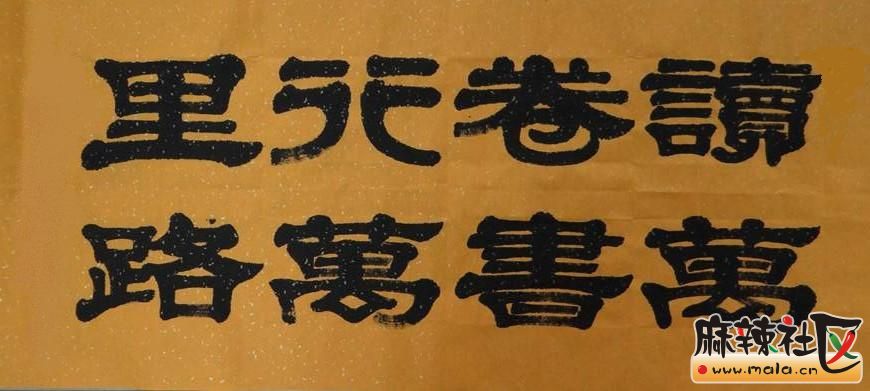 讀萬
卷書
行萬
里路
麻辣社区
www.mala.cn